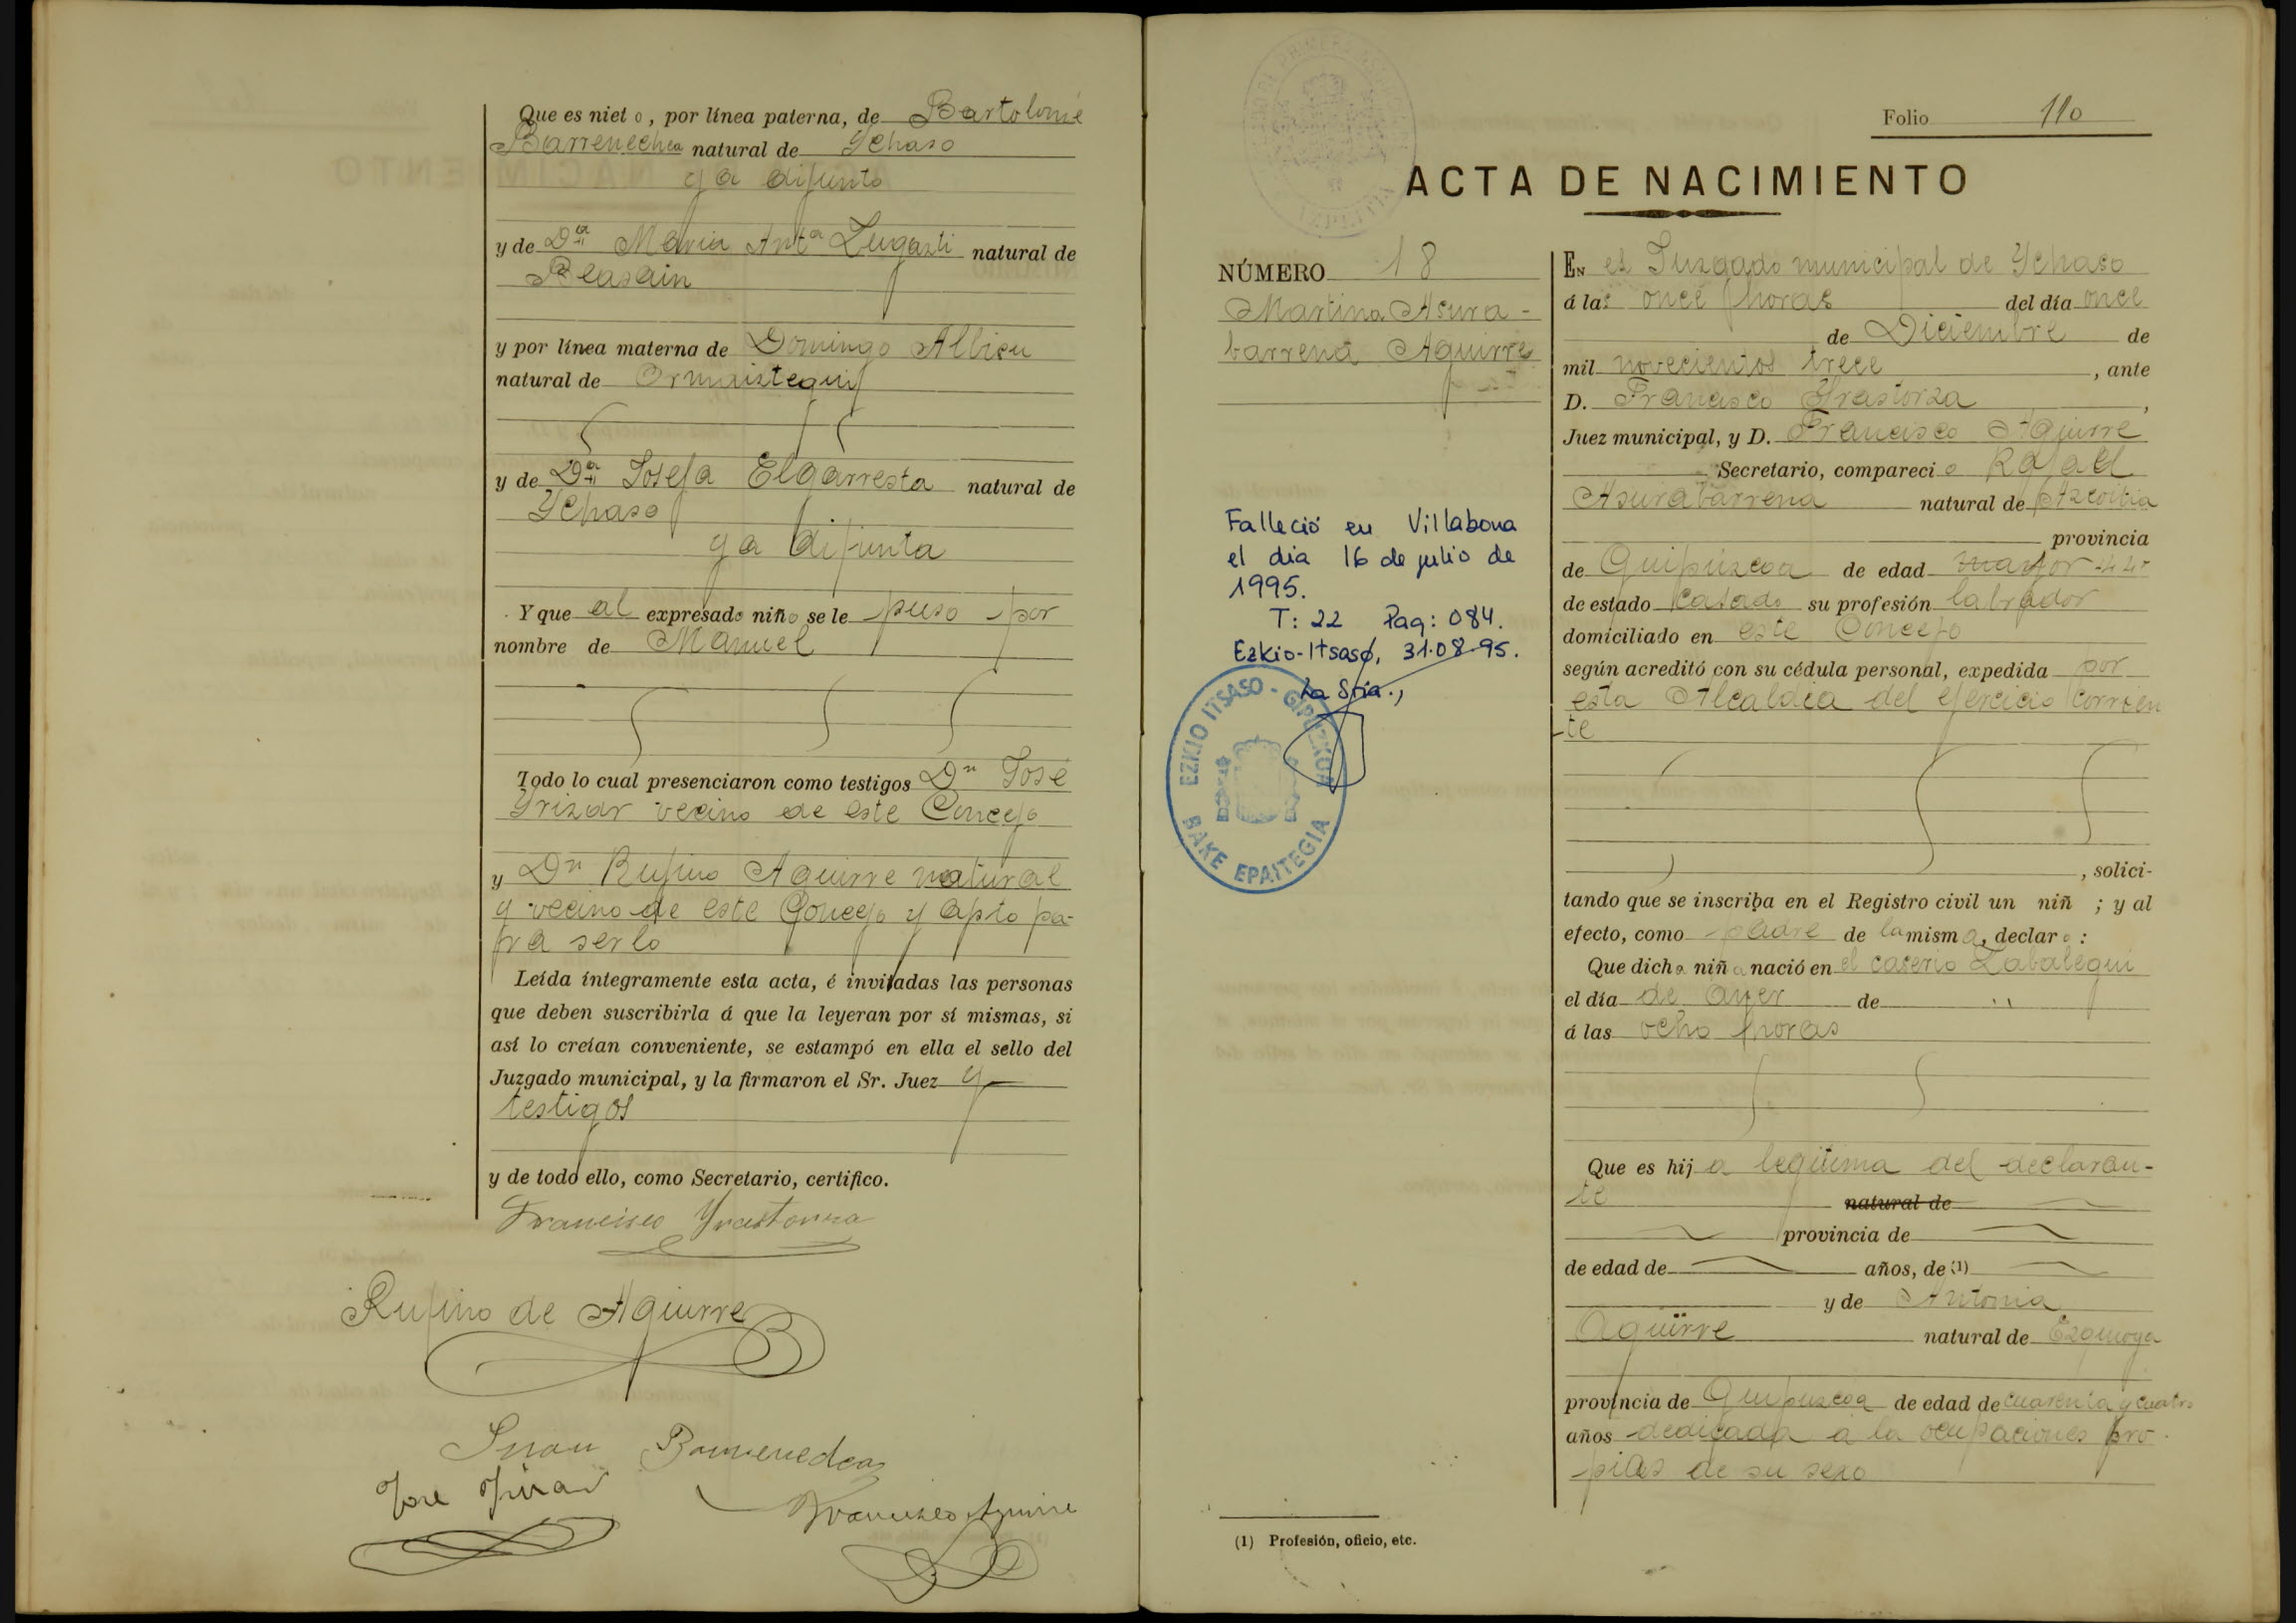 Que es nieto, por línea paterna, de Bartolomé
Barrenechea natural de Ychaso
ya difunto
y de Dª Maria Antª Lugazti natural de
Beasain
y por línea materna de Domingo Albisu
natural de Ormaiztegui
y de Dª Josefa Elgarresta natural de
Ychaso
ya difunta
Y que al expresado niño se le puso por
nombre de Manuel
Todo lo cual presenciaron como testigos Dn José
Yrizar vecino de este Concejo
y Dn Rufino Aguirre natural
y vecino de este Concejo y apto pa-
ra serlo
Leída íntegramente esta acta, é invitadas las personas
que deben suscribirla á que la leyeran por sí mismas, si
así lo creían conveniente, se estampó en ella el sello del
Juzgado municipal, y la firmaron el Sr. Juez y
testigos
y de todo ello, como Secretario, certifico.
Francisco Yrastorza
Rufino de Aguirre
Juan Barrenechea
José Yrizar
Francisco Aguirre
Folio 110
ACTA DE NACIMIENTO
NÚMERO 18
Martina Asura-
barrena Aguirre
Falleció en Villabona
el dia 16 de julio de
1995.
T: 22 Pag: 084.
Ezkio-Itsaso, 31.08.95.
La Sria.,
EZKIO ITSASO - GIPUZKOA
BAKE EPAITEGIA
EN el Juzgado municipal de Ychaso
á las once horas del día once
de Diciembre de
mil novecientos trece, ante
D. Francisco Yrastorza,
Juez municipal, y D. Francisco Aguirre
Secretario, compareció Rafael
Asurabarrena natural de Azcoitia
provincia
de Guipúzcoa de edad mayor 44
de estado casado su profesión labrador
domiciliado en este Concejo
según acreditó con su cédula personal, expedida por
esta Alcaldia del ejercicio corrien
te
, solici-
tando que se inscriba en el Registro civil un niñ ; y al
efecto, como padre de la misma, declaro:
Que dicha niña nació en el caserio Zabalegui
el día de ayer de "
á las ocho horas
Que es hija legitima del declaran-
te natural de
provincia de
de edad de años, de (1)
y de Antonia
Aguirre natural de Ezquioga
provincia de Guipuzcoa de edad de cuarenta y cuatro
años dedicada a la ocupaciones pro
pias de su sexo
(1) Profesión, oficio, etc.